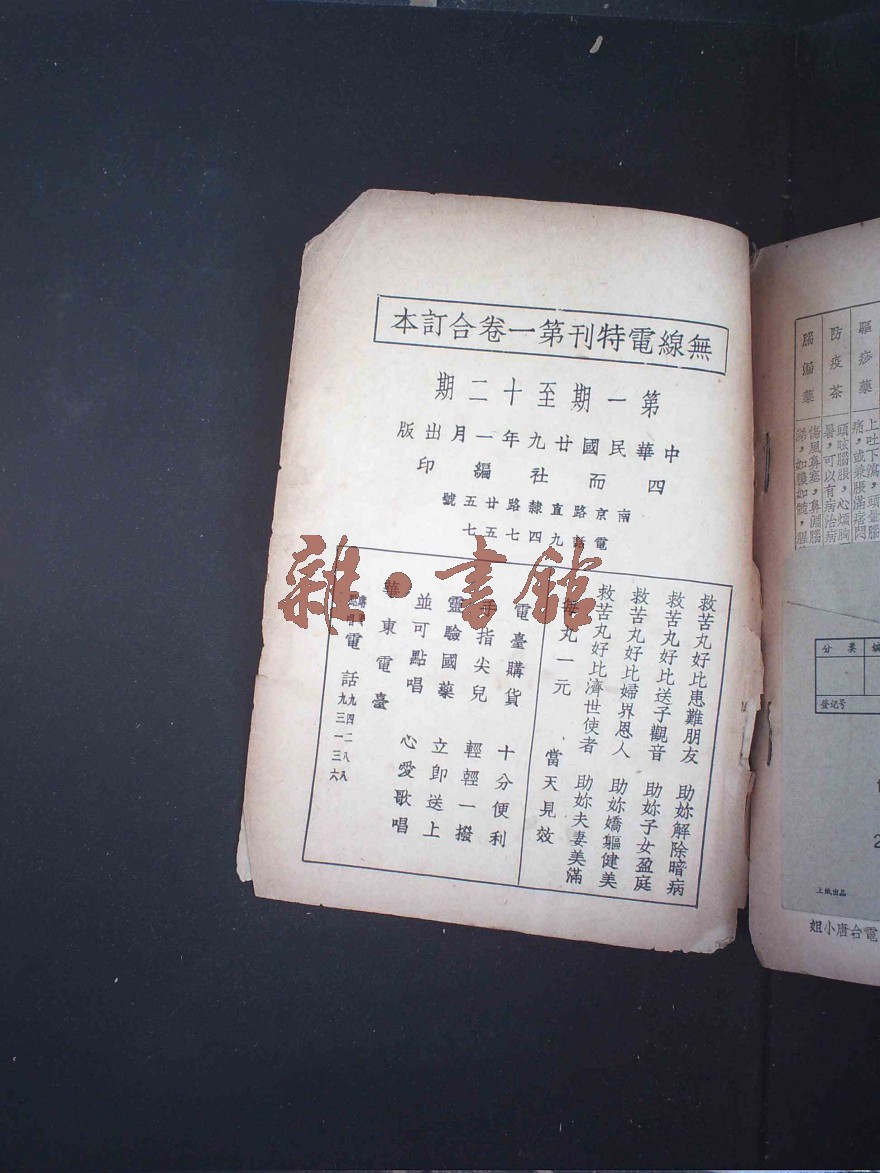 無線電特刊第一卷合訂本
第一期至十二期
中華民國廿九年一月出版
四而社編印
南京路直隸路廿五號
電話九四七五七
救苦丸好比患難朋友 助妳解除暗病
救苦丸好比送子觀音 助妳子女盈庭
救苦丸好比婦界恩人 助妳嬌軀健美
救苦丸好比濟世使者 助妳夫妻美滿
每丸一元 當天見效
電臺購貨 十分便利
手指尖兒 輕輕一撥
靈驗國藥 立即送上
並可點唱 心愛歌唱
華東電臺
電話
九四二八八
九三一三六
雜·書館
驅痧藥
上吐下瀉，頭暈腦
痛，或乘脹滿痞悶
防疫茶
頭眩腦脹，心煩胸
暑，可以有病治病
腦漏藥
傷風鼻塞，鼻淵腦
涕，如膿如髓，腥
分类
登记号
上紙出品
電台唐小姐